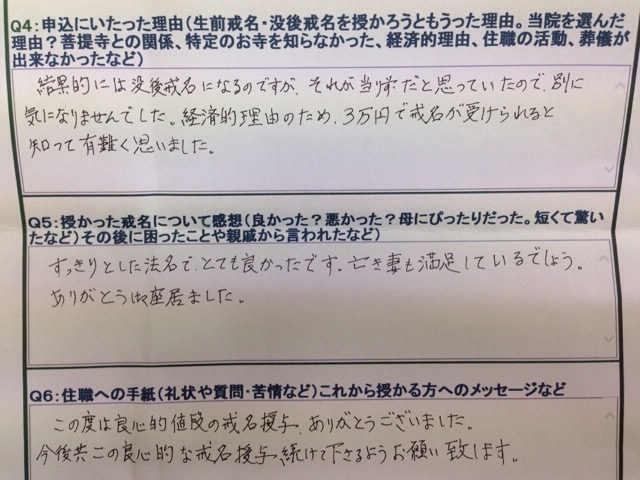 Q4:申込にいたった理由(生前戒名・没後戒名を授かろうともうった理由。当院を選んだ
理由?菩提寺との関係、特定のお寺を知らなかった、経済的理由、住職の活動、葬儀が
出来なかったなど)
結果的には没後戒名になるのですが、それが当り前だと思っていたので、別に
気になりませんでした。経済的理由のため、3万円で戒名が受けられると
知って有難く思いました。
Q5:授かった戒名について感想(良かった?悪かった?母にぴったりだった。短くて驚い
たなど)その後に困ったことや親戚から言われたなど)
すっきりとした法名で、とても良かったです。亡き妻も満足しているでしょう。
ありがとう御座居ました。
Q6:住職への手紙(礼状や質問・苦情など)これから授かる方へのメッセージなど
この度は良心的値段の戒名授与、ありがとうございました。
今後共この良心的な戒名授与、続けて下さるようお願い致します。